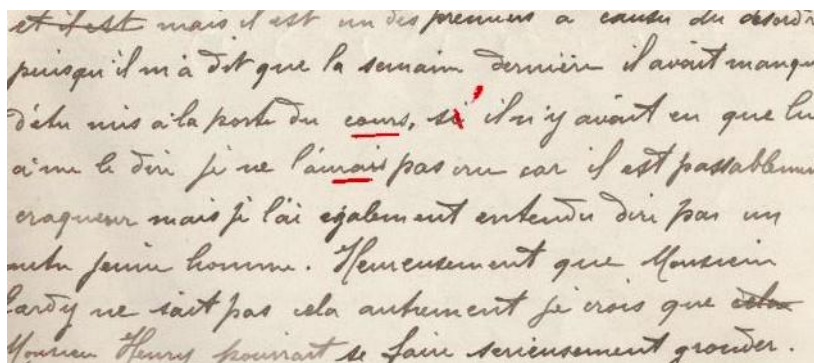 et il est mais il est un des premiers a cause du desordr
puisqu'il m'a dit que la semain dernière il avait manqu
d'etre mis a la porte du cours, s'il n'y avait eu que lu
a me le dire je ne l'aurais pas cru car il est passablemen
craqueur mais je l'ai egalement entendu dire par un
autre jeune homme. Heureusement que Monsieur
Lardy ne sait pas cela autrement je crois que cela
Monsieur Henry pourrait se faire serieusement gronder.